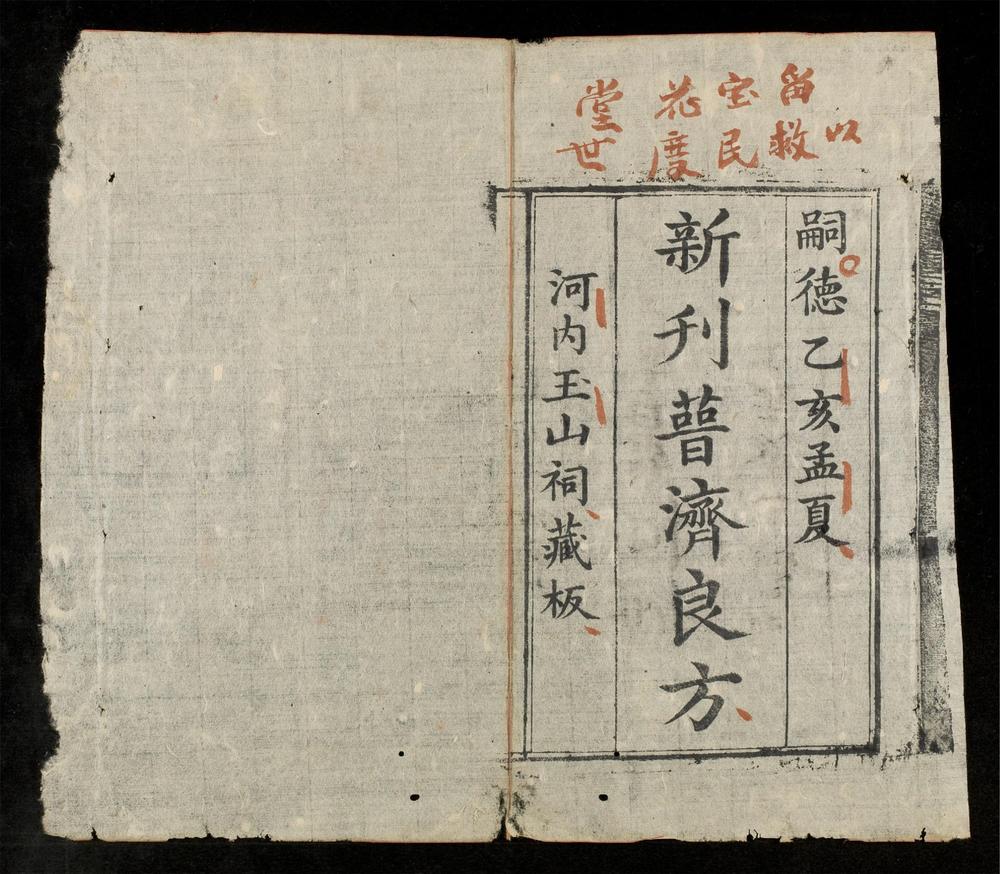 留宝花堂
以救民度世
嗣徳乙亥孟夏
新刊普濟良方
河内玉山祠藏板